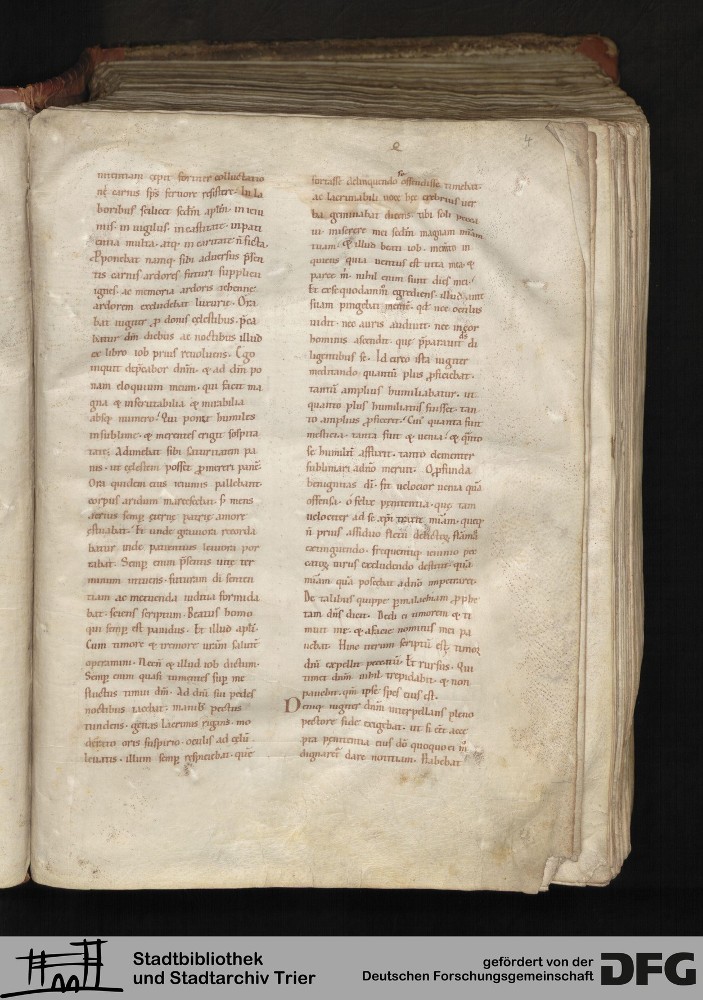 e
4
carnis sp̅s feruore resistere. In la
boribus scilicet
mis. in uigiliis. in castitate. in pati
entia multa. atq; in caritate n̅ ficta.
Opponebat namq; sibi aduersus p̅sen
tis carnis ardores futuri supplicii
ignes. ac memoria ardoris gehennę
ardorem excludebat luxurię. Ora
bat iugiter ꝓ donis cęlestibus. p̅ca
batur dn̅m diebus ac noctibus illud
ex libro iob prius reuoluens. Ego
inquit dep̅cabor dn̅m. & ad dn̅m po
nam eloquium meum. qui facit ma
gna & inscrutabilia & mirabilia
absq; numero. Qui ponit humiles
in sublime. & merentes erigit sospita
te. Adimebat sibi saturitatem pa
nis. ut cęlestem posset ꝓmereri panē.
Ora quidem eius ieiuniis pallebant.
corpus aridum marcescebat. s; mens
semp̲ ęternę patrię amore
ęstuabat. Et unde grauiora recorda
batur inde patientius leuiora por
tabat. Semp̲ enim p̅sentis uitę ter
minum intuens. futuram di̅ senten
tiam ac metuenda iudicia formida
bat. sciens scriptum. Beatus homo
qui semp̲ est pauidus. Et illud apl̅i.
Cum timore & tremore uram̅ salutē
operamini. Necn̅ & illud iob dictum.
Semp̲ enim quasi tumentes sup̲ me
fluctus timui dm̅. Ad dn̅i sui pedes
noctibus iacebat. manib; pectus
tundens. genas lacrimis rigans. mo
oris suspirio. oculis ad cęlū
leuatis. illum semp̲ respiciebat. quē
fortasse delinquendo offendisse timebat.
se
ac lacrimabili uoce hęc crebrius uer
ba geminabat dicens. tibi soli pecca
ui. miserere mei secdm̅ magnam miam̅
tuam. & illud beati iob. in
quiens quia uentus est uita mea &
parce m̅. nihil enim sunt dies mei.
Et ex se quodammo̅ egrediens. illud ante
suam pingebat mentē. qd̅ nec oculus
uidit. nec auris audiuit. nec in cor
hominis ascendit. quę p̅parauit ds̅ di
ligentibus se. Id circo ista iugiter
meditando quantū plus ꝓficiebat.
tantū amplius humiliabatur. ut
quanto plus humiliatus fuisset. tan
to amplius ꝓficeret. Cui quanta fuit
mesticia. tanta fuit & uenia. & quāto
se humilē assuauit. tanto clementer
sublimari a dno̅ meruit. O ꝓfunda
benignitas di̅. sit uelocior uenia quā
offensa. o felix pęnitentia. quę tam
uelociter ad se miam̅. queq;
n̅ prius assiduo fletu flāmā
extinguendo. frequentiq; ieiunio pec
cati uirus excludendo destitit. quā
miam̅ quā poscebat a dno̅ impetraret.
De talibus quippe p̲ malachiam ꝓphe
tam dn̅s dicit. Dedi ei timorem & ti
muit me. & a facie nominis mei pa
uebat. Hinc iterum scriptū est. timor
dn̅i expellit peccatū. Et rursus. Qui
timet dn̅m nihil trepidabit. & non
pauebit. qm̅ ipse spes eius est.
Denique iugiter dn̅m interpellans pleno
pectore fide exigebat. ut si ēēt acce
pta pęnitentia eius dō quoquo ei m̅
dignaretˀ dare notitiam. Flabebat
Stadtbibliothek
und Stadtarchiv Trier
gefördert von der
Deutschen Forschungsgemeinschaft
DFG